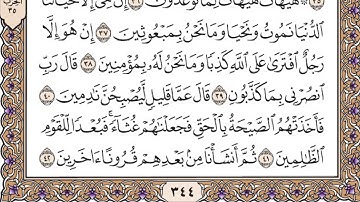 ۞ هَيْهَاتَ هَيْهَاتَ لِمَا تُوعَدُونَ ٣٦ إِنْ هِىَ إِلَّا حَيَاتُنَا
ٱلدُّنْيَا نَمُوتُ وَنَحْيَا وَمَا نَحْنُ بِمَبْعُوثِينَ ٣٧ إِنْ هُوَ إِلَّا
رَجُلٌ ٱفْتَرَىٰ عَلَى ٱللَّهِ كَذِبًا وَمَا نَحْنُ لَهُۥ بِمُؤْمِنِينَ ٣٨ قَالَ رَبِّ
ٱنصُرْنِى بِمَا كَذَّبُونِ ٣٩ قَالَ عَمَّا قَلِيلٍ لَّيُصْبِحُنَّ نَٰدِمِينَ ٤٠
فَأَخَذَتْهُمُ ٱلصَّيْحَةُ بِٱلْحَقِّ فَجَعَلْنَٰهُمْ غُثَآءً ۚ فَبُعْدًا لِّلْقَوْمِ
ٱلظَّٰلِمِينَ ٤١ ثُمَّ أَنشَأْنَا مِنۢ بَعْدِهِمْ قُرُونًا ءَاخَرِينَ ٤٢
٣٤٤
الحزب
٣٥